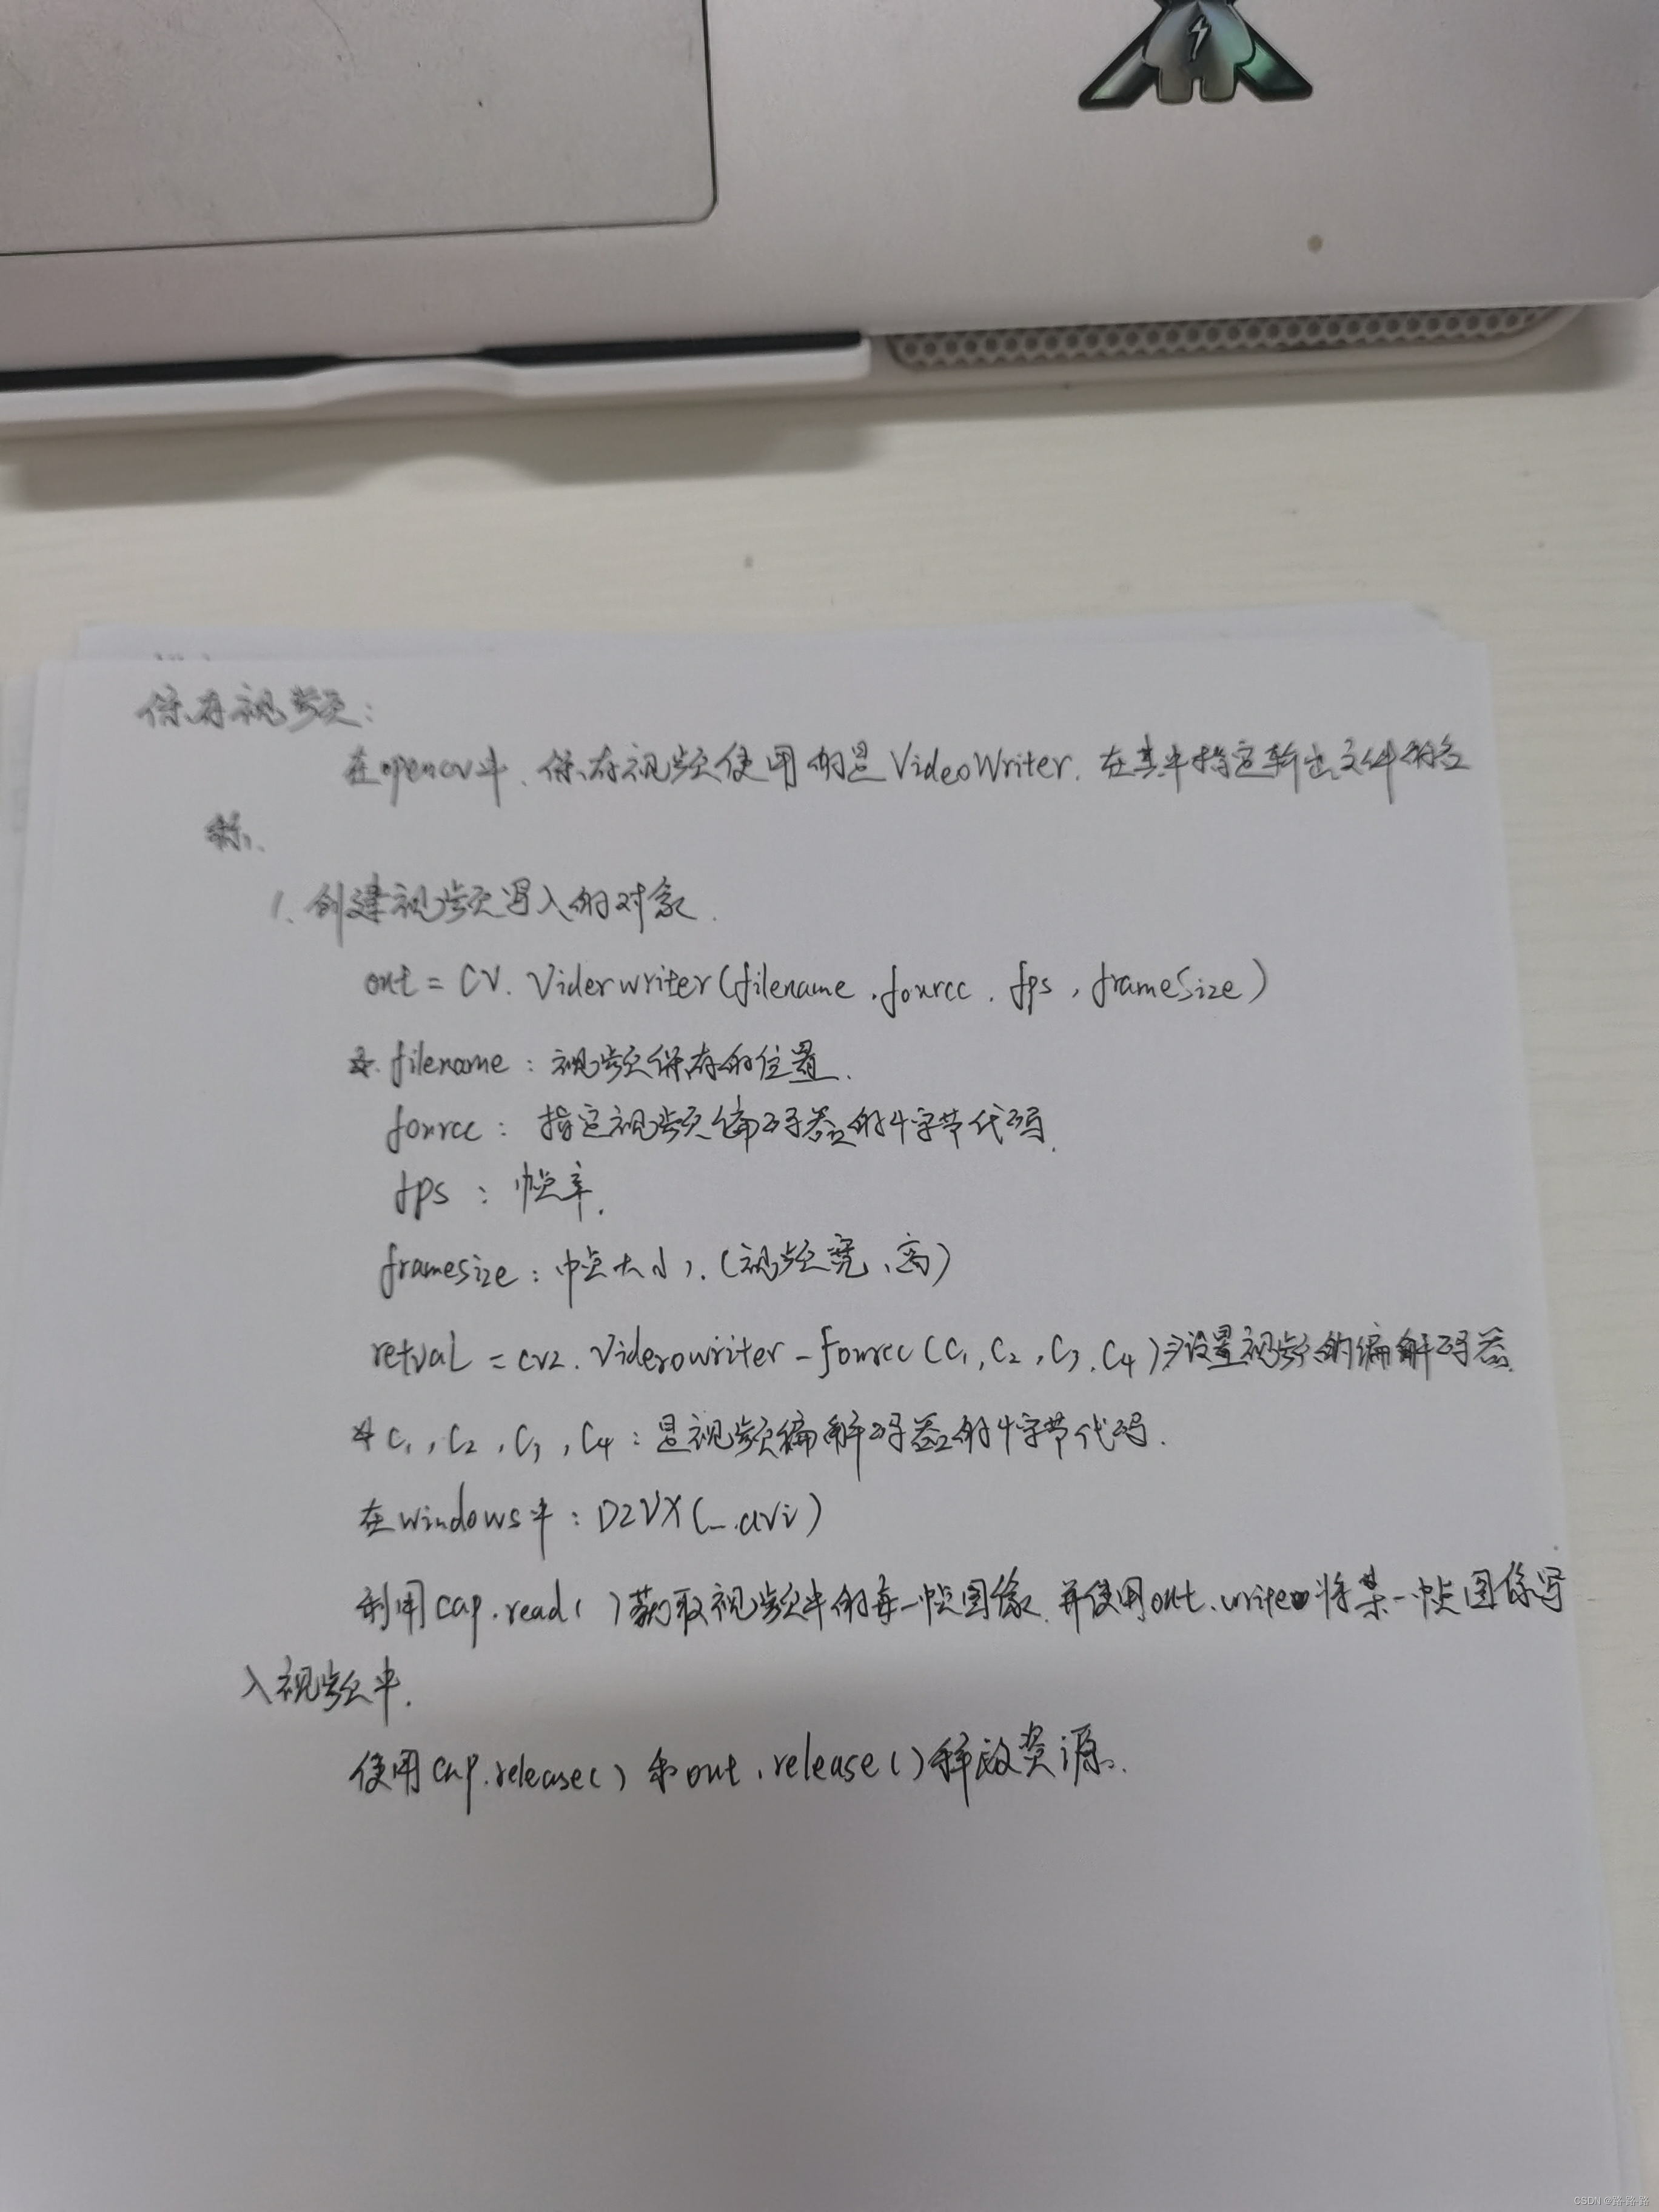 保存视频：
在opencv中、保存视频使用的是VideoWriter. 在其中指定输出文件的名
称、
1、创建视频写入的对象.
out = CV. Viderwriter(filename .fourcc . fps , frameSize)
* filename : 视频保存的位置.
fourcc : 指定视频编码器的4字节代码.
fps : 帧率.
framesize : 帧大小. (视频宽、高)
retval = cv2. Viderowriter_fourcc (C₁,C₂,C₃,C₄)⇒设置视频的编解码器.
* C₁,C₂,C₃,C₄ : 是视频编解码器的4字节代码.
在windows中 : D2VX(_.avi)
利用cap.read( )获取视频中的每一帧图像.并使用out.write将某一帧图像写
入视频中.
使用cap.release( ) 和out.release( )释放资源.
CSDN @路·路·路